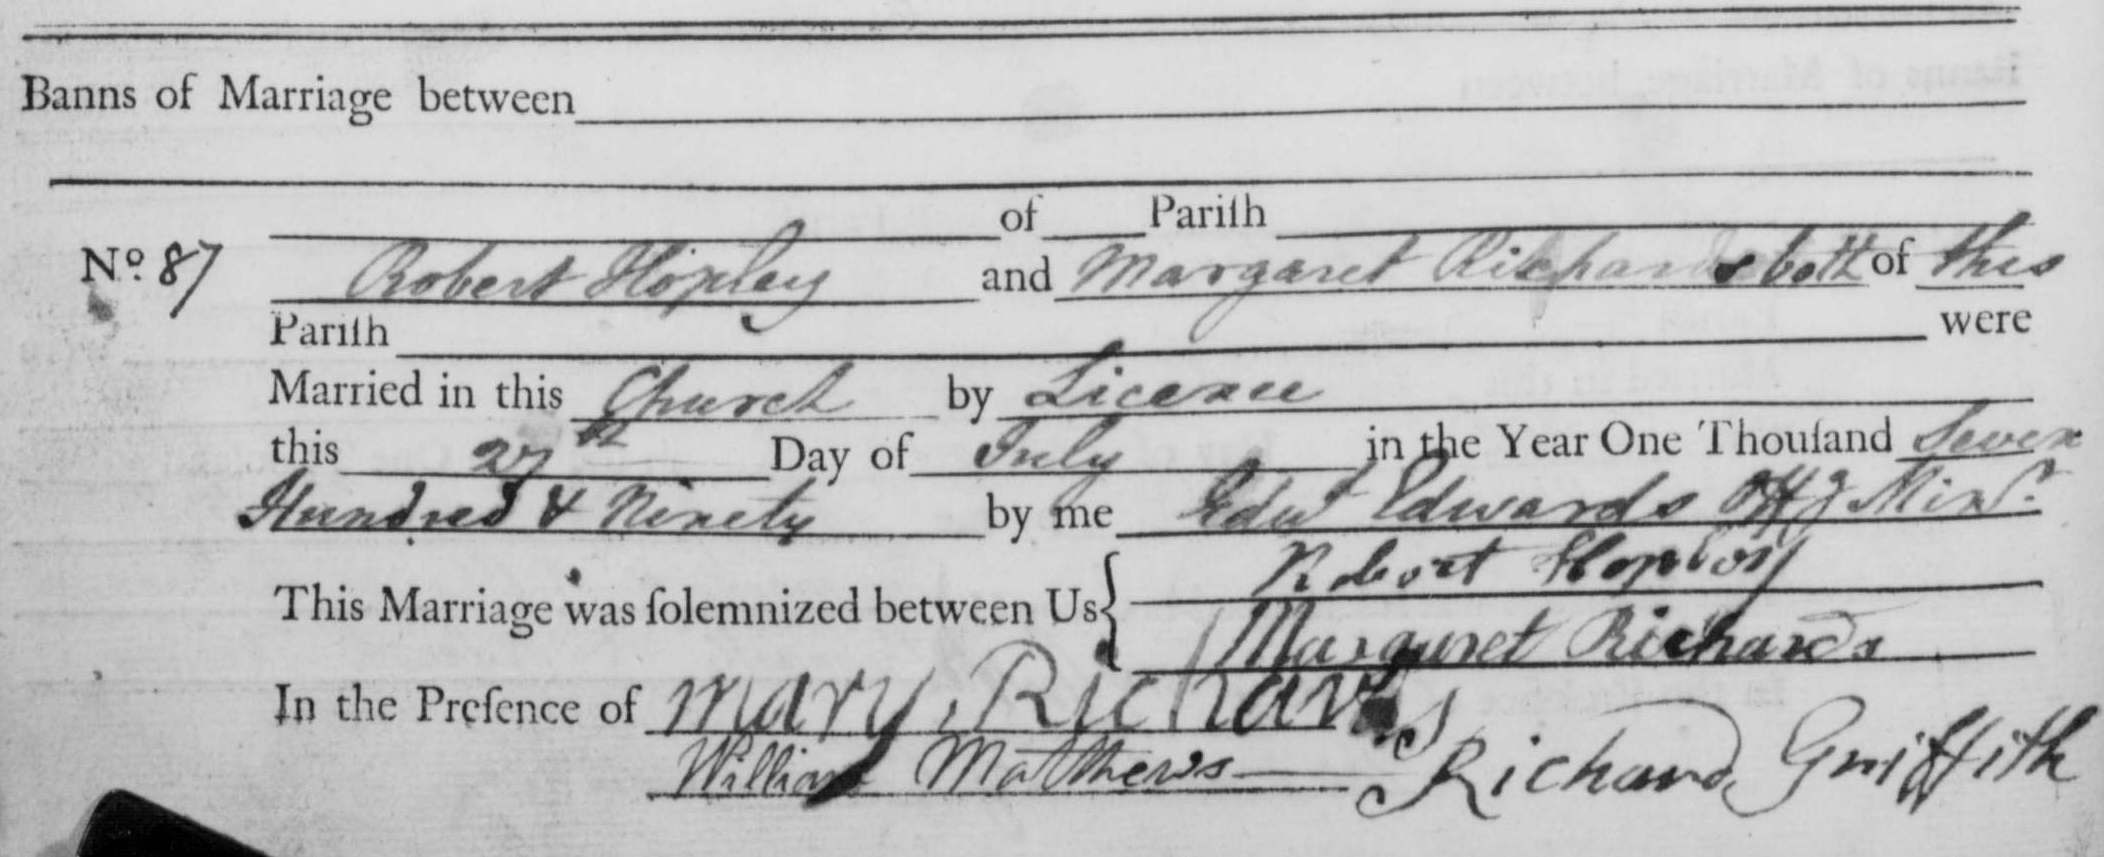 Banns of Marriage between
of Pariſh
No. 87 Robert Hopley and Margaret Richards both of this
Pariſh were
Married in this Church by Licence
this 27th Day of July in the Year One Thouſand Seven
Hundred & Ninety by me Edwd Edwards Offg Minr.
This Marriage was ſolemnized between Us { Robert Hopley
Margaret Richards
In the Preſence of Mary Richards
William Matthews Richard Griffith